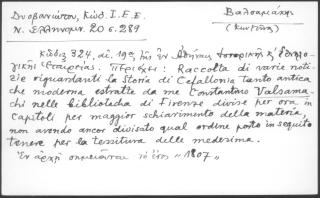 Δυοβουνιώτου, Κώδ. Ι.Ε.Ε.
Βαλσαμάκης
Ν. Ἑλληνομν. 20 σ. 289
(Κων/τῖνος)
Κώδιξ 324, αἰ. 19ου τῆς ἐν Ἀθήναις Ἱστορικῆς κ' Ἐθνολο-
γικῆς Ἑταιρείας. Περιέχει: Raccolta di varie noti-
zie riguardanti la Storia di Cefallonia tanto antica,
che moderna estratte da me Constantino Valsama-
chi nelle biblioteche di Firenze divise per ora in
Capitoli per maggior schiarimento della materia,
non avendo ancor divisato qual ordine porto in seguito
tenere per la tessitura delle medesima.
Ἐν ἀρχῇ σημειοῦται τὸ ἔτος "1807"